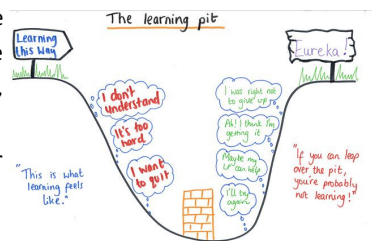 The learning pit
Learning
this Way
Eureka!
I don't
understand
It's too
hard
I want
to quit
I was right not
to give up
Ah! I think I'm
getting it
Maybe my
can help
I'll try
again
"This is what
learning feels
like."
"If you can leap
over the pit,
you're probably
not learning!"